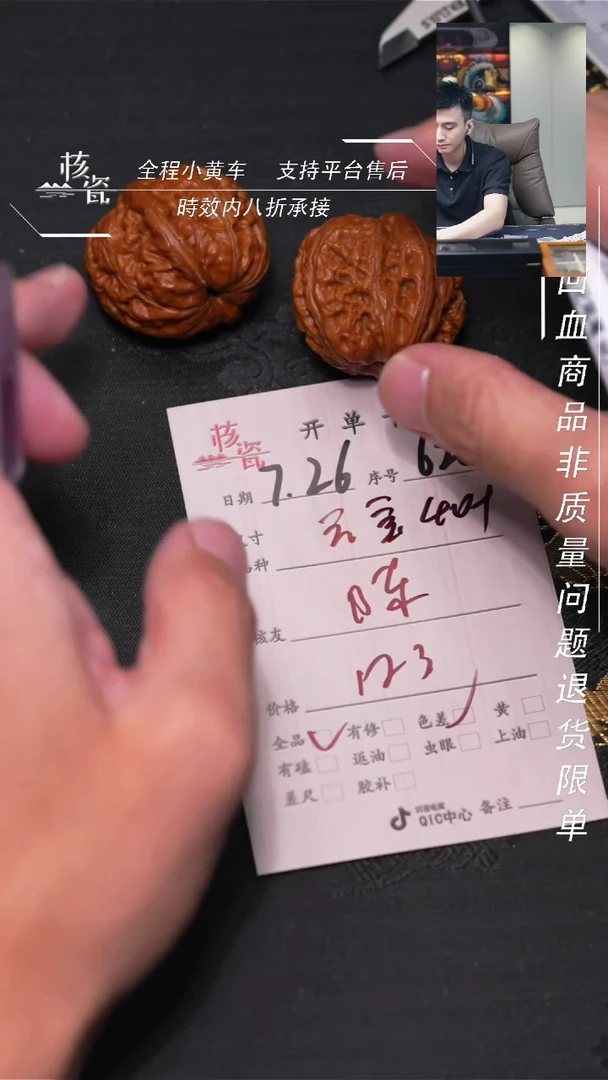 核瓷
全程小黄车 支持平台售后
時效内八折承接
回血商品非质量问题退货限单
核瓷 开单
日期 7.26 序号
寸 元宝 404
种
陈
核友
123
价格
全品 ✓ 有修 色差 ✓ 黄
有磕 返油 虫眼 上油
差尺 胶补
抖音电商
QIC中心 备注